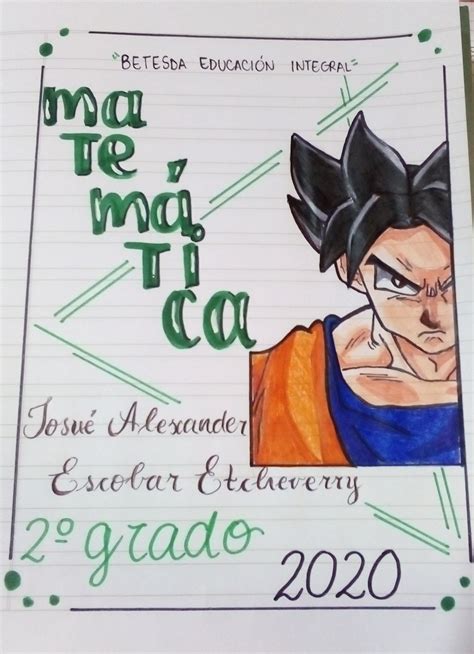 "BETESDA EDUCACIÓN INTEGRAL"
ma
te
má
ti
ca
Josué Alexander
Escobar Etcheverry
2º grado
2020